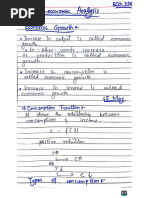 economic Analysis
ECO-334
Economic Growth:-
• Increase in output is called economic
growth.
• In other words, increase
in production is called economic
growth.
• Increase in consumption is
called economic growth.
• Increase in income is called
economic growth.
25 May
① Consumption Function:-
It shows the relationship between
consumption & income.
C = f (Y)
positive relation
Types of consumption:-